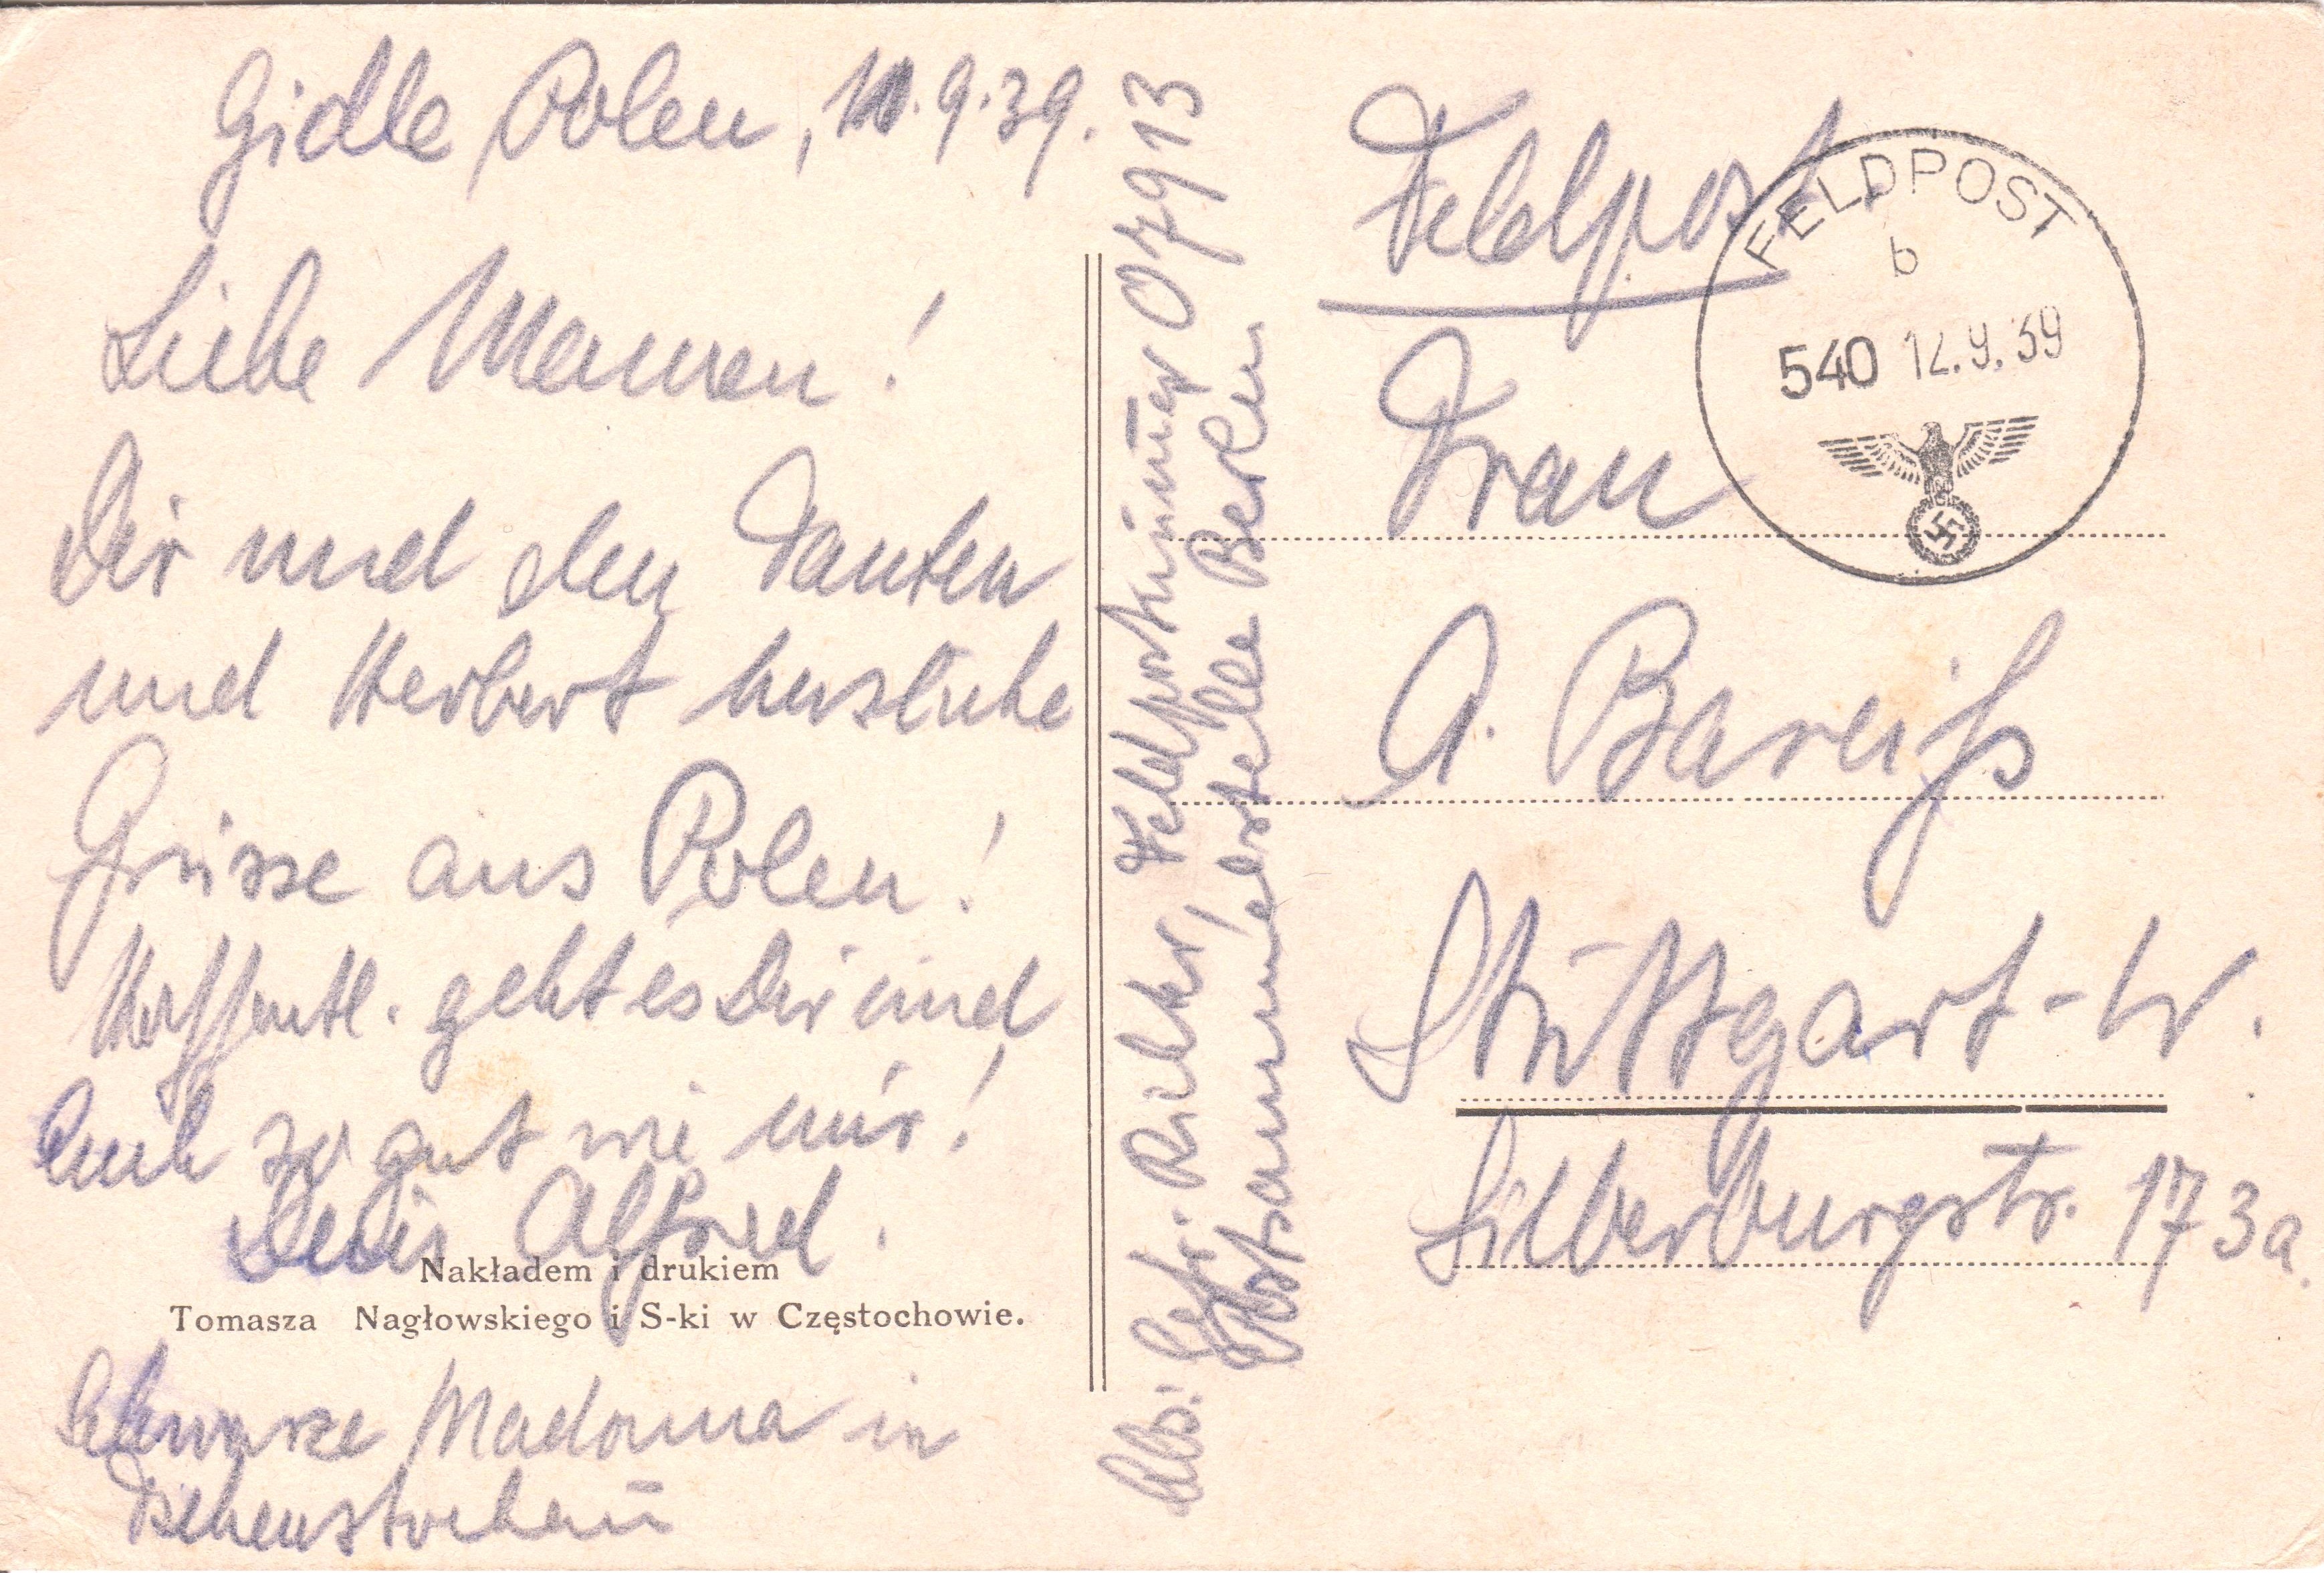 Gidle Polen, 10.9.39.
Liebe Maman!
Dir und den Tanten
und Herbert herzliche
Grüsse aus Polen!
Hoffentl. geht es Dir und
Euch so gut wie mir!
Dein Alfred.
Nakładem i drukiem
Tomasza Nagłowskiego i S-ki w Częstochowie.
Schwarze Madonna in
Tschenstochau
Abs: Gefr. Richter, Feldpostnummer 07913
Postsammelstelle Berlin
Feldpost
FELDPOST
b
540 12.9.39
Frau
A. Bareiß
Stuttgart-W.
Silberburgstr. 173a.